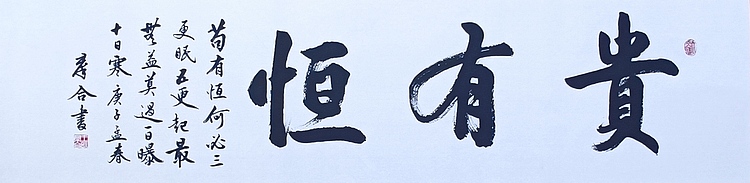 貴有恒
苟有恒何必三
更眠五更起最
無益莫過一曝
十日寒庚子孟春
彦合書